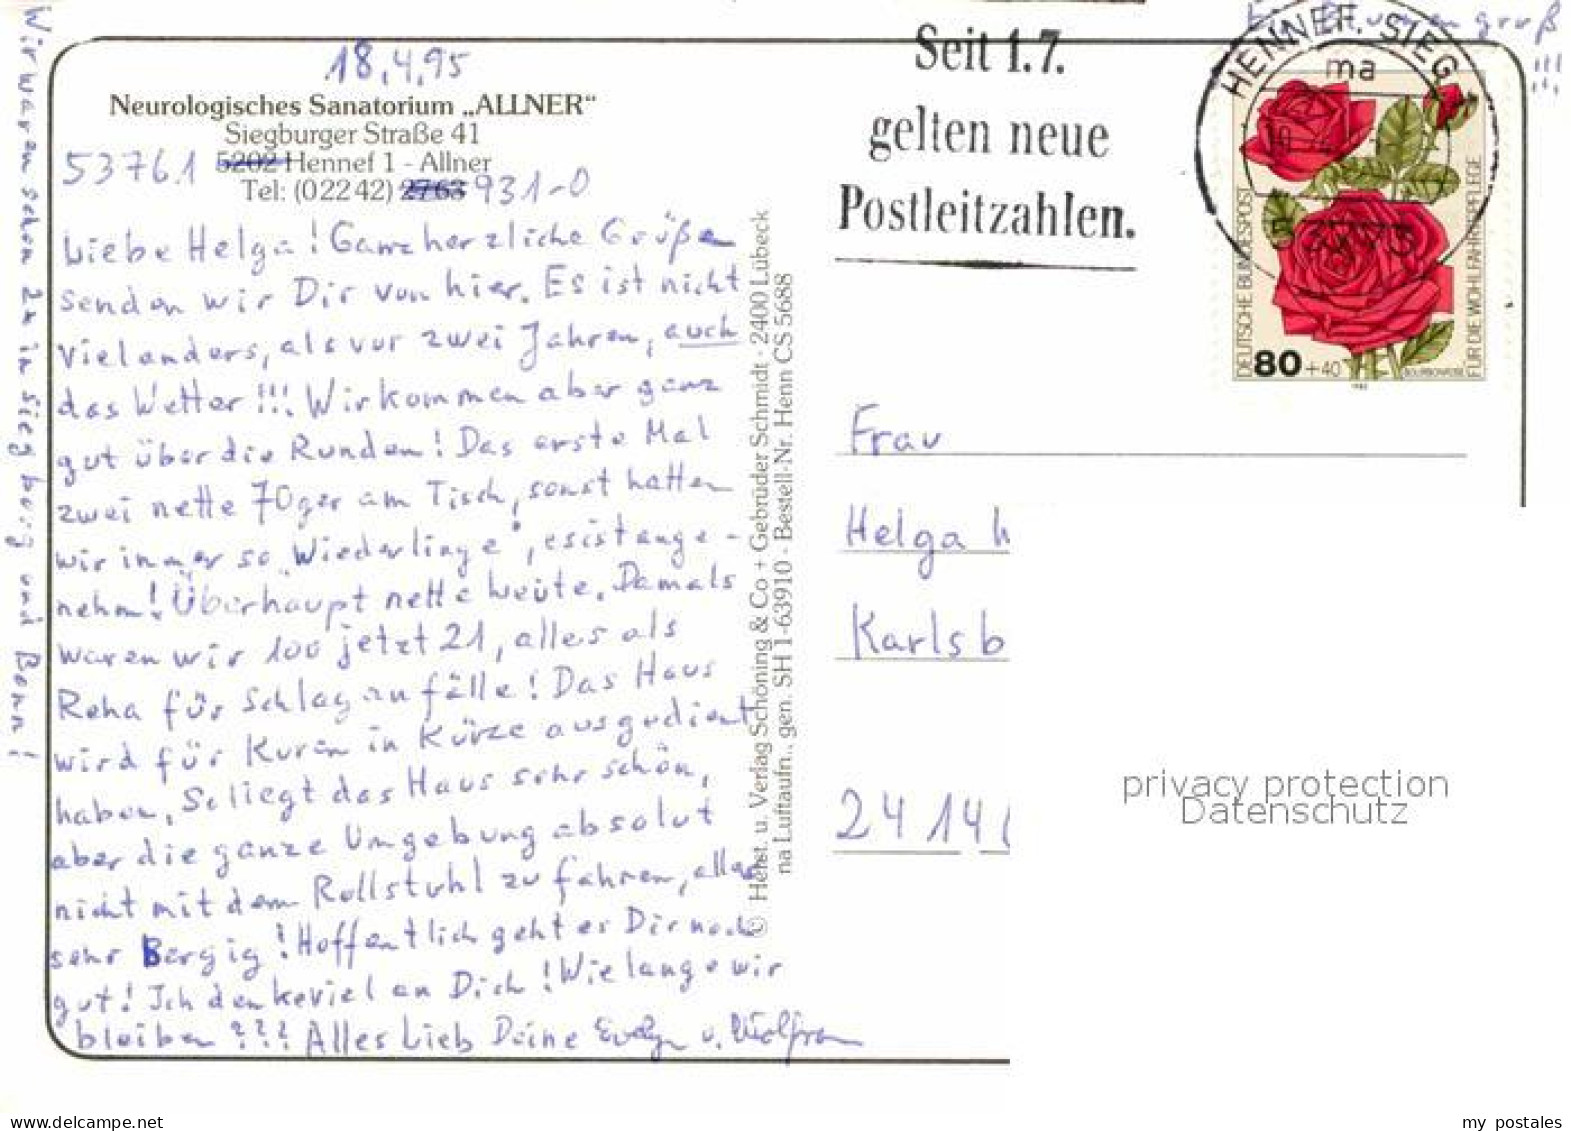 18.4.95
Neurologisches Sanatorium „ALLNER“
Siegburger Straße 41
53761 5202 Hennef 1 - Allner
Tel: (02242) 2763 931-0
Liebe Helga! Ganz herzliche Grüße
senden wir Dir von hier. Es ist nicht
viel anders, als vor zwei Jahren, auch
das Wetter!!! Wir kommen aber ganz
gut über die Runden! Das erste Mal
zwei nette 70ger am Tisch, sonst hatten
wir immer so „Wiederlinge“, es ist ange-
nehm! Überhaupt nette Leute. Damals
waren wir 100 jetzt 21, alles als
Reha für Schlaganfälle! Das Haus
wird für Kuren in Kürze ausgedient
haben. So liegt das Haus sehr schön,
aber die ganze Umgebung absolut
nicht mit dem Rollstuhl zu fahren, alles
sehr Bergig! Hoffentlich geht es Dir noch
gut! Ich denke viel an Dich! Wie lange wir
bleiben ??? Alles Lieb Deine Evelyn u. Wolfram
Wir waren schon 2x in Siegburg und Bonn!
© Herst. u. Verlag Schöning & Co + Gebrüder Schmidt · 2400 Lübeck
na Luftaufn., gen. SH 1-63910 · Bestell-Nr. Henn CS 5688
Seit 1.7.
gelten neue
Postleitzahlen.
gruß
!!!
HENNEF, SIEG
ma
DEUTSCHE BUNDESPOST
80 +40
FÜR DIE WOHLFAHRTSPFLEGE
Frau
Helga
Karlsb
2414
privacy protection
Datenschutz
delcampe.net
my_postales